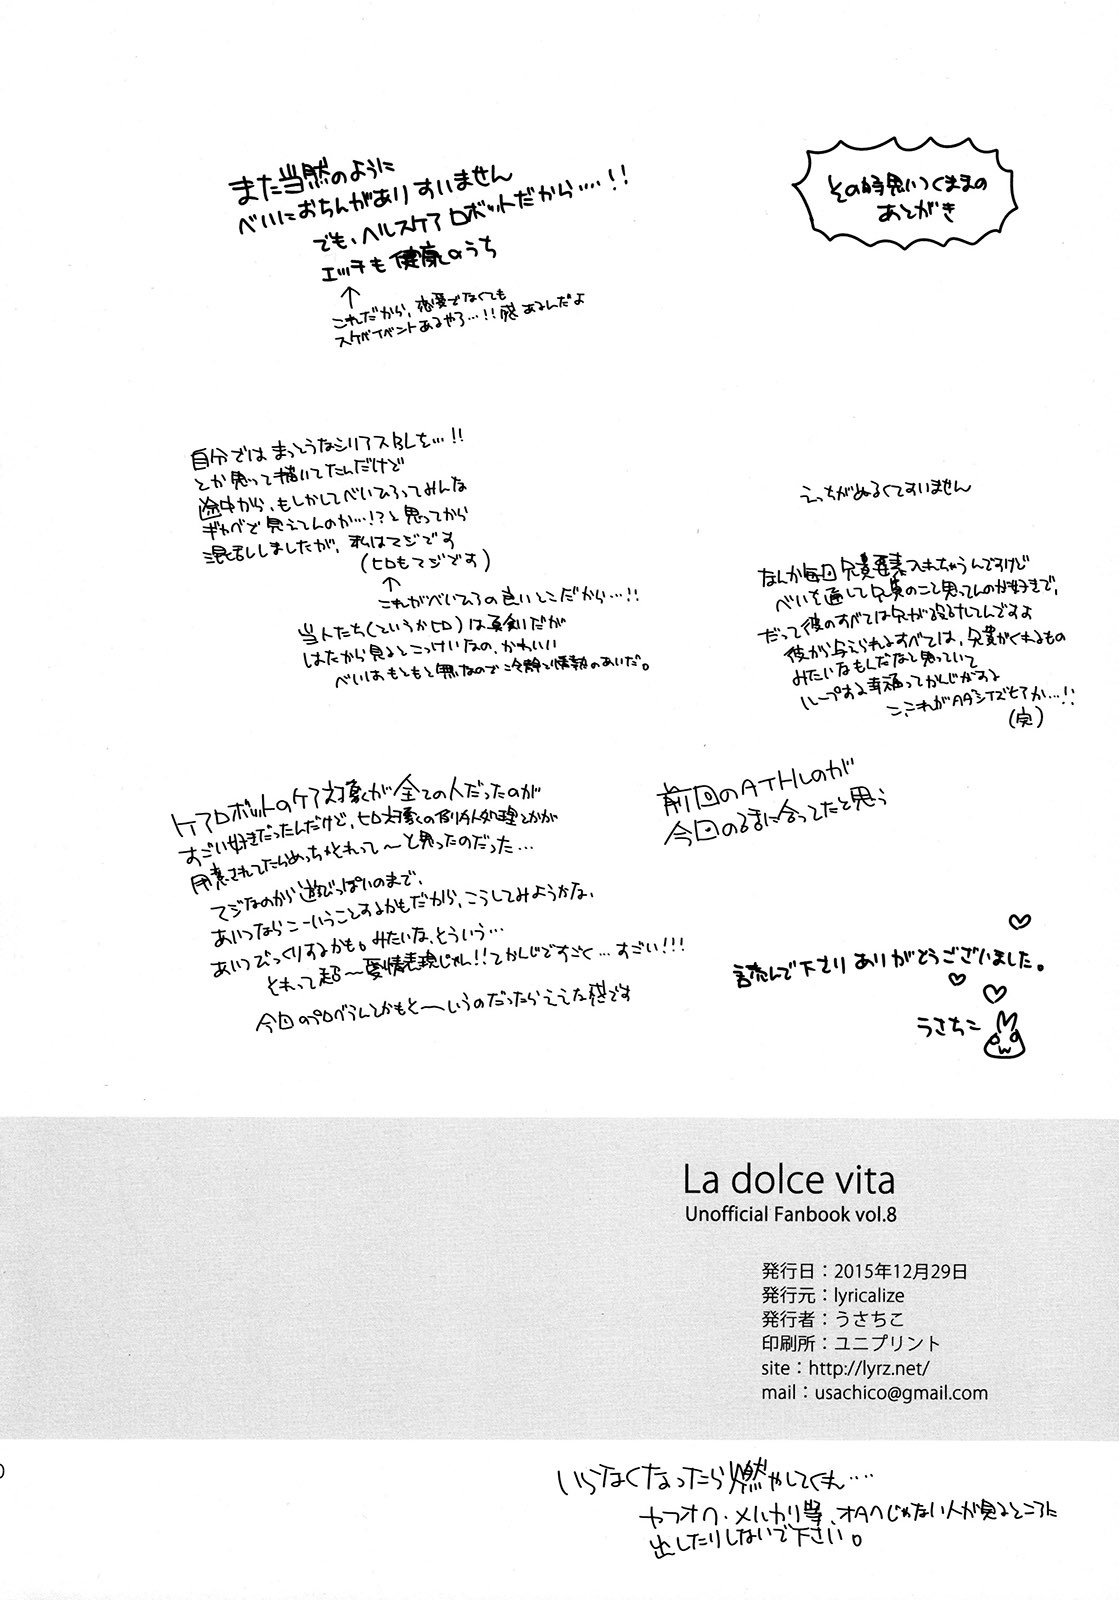 その時思いつくままの
あとがき
また当然のように
べいにおちんがありすいません
でも、ヘルスケアロボットだから‥‥!!
エッチも健康のうち
↑
これだから、恋愛でなくても
スケベイベントあるやろ…!!感あるんだよ
えっちがぬるくてすいません
自分ではまっとうなシリアスBLを…!!
とか思って描いてたんだけど
途中から、もしかしてべいひろってみんな
ギャグで見えてんのか…!?と思ってから
混乱しましたが、私はマジです
(ヒロもマジです)
↑
これがべいひろの良いとこだから…!!
当人たち(というかヒロ)は真剣だが
はたから見るとこっけいなの、かわいい
べいはもともと無なので冷静と情熱のあいだ。
なんか毎回兄貴要素入れちゃうんですけど
べいを通して兄貴のこと思ってんのが好きで、
だって彼のすべては兄が設計してんですよ
彼が与えられるすべては、兄貴がくれるもの
みたいなもんだなと思っていて
ループする幸福ってかんじがする
こ、これがAA'シナズヒアか…!!
(完)
ケアロボットのケア対象が全ての人だったのが
すごい好きだったんだけど、ヒロ対象の個人処理とかが
用意されてたらめっちゃそれって〜と思ったのだった…
マジなのから遊びっぽいのまで、
あいつならこーいうことするかもだから、こうしてみようかな、
あいつびっくりするかも。みたいな、そういう…
それって超〜愛情表現じゃん!!てかんじですごく…すごい!!!
今回のプログラムとかもそーいうのだったらええな感です
前回のATHLのが
今回のるまに合ってたと思う
読んで下さりありがとうございました。
うさちこ
La dolce vita
Unofficial Fanbook vol.8
発行日：2015年12月29日
発行元：lyricalize
発行者：うさちこ
印刷所：ユニプリント
site：http://lyrz.net/
mail：usachico@gmail.com
0
いらなくなったら燃やしてくれ‥‥
ヤフオク・メルカリ等、オタクじゃない人が見るところに
出したりしないで下さい。